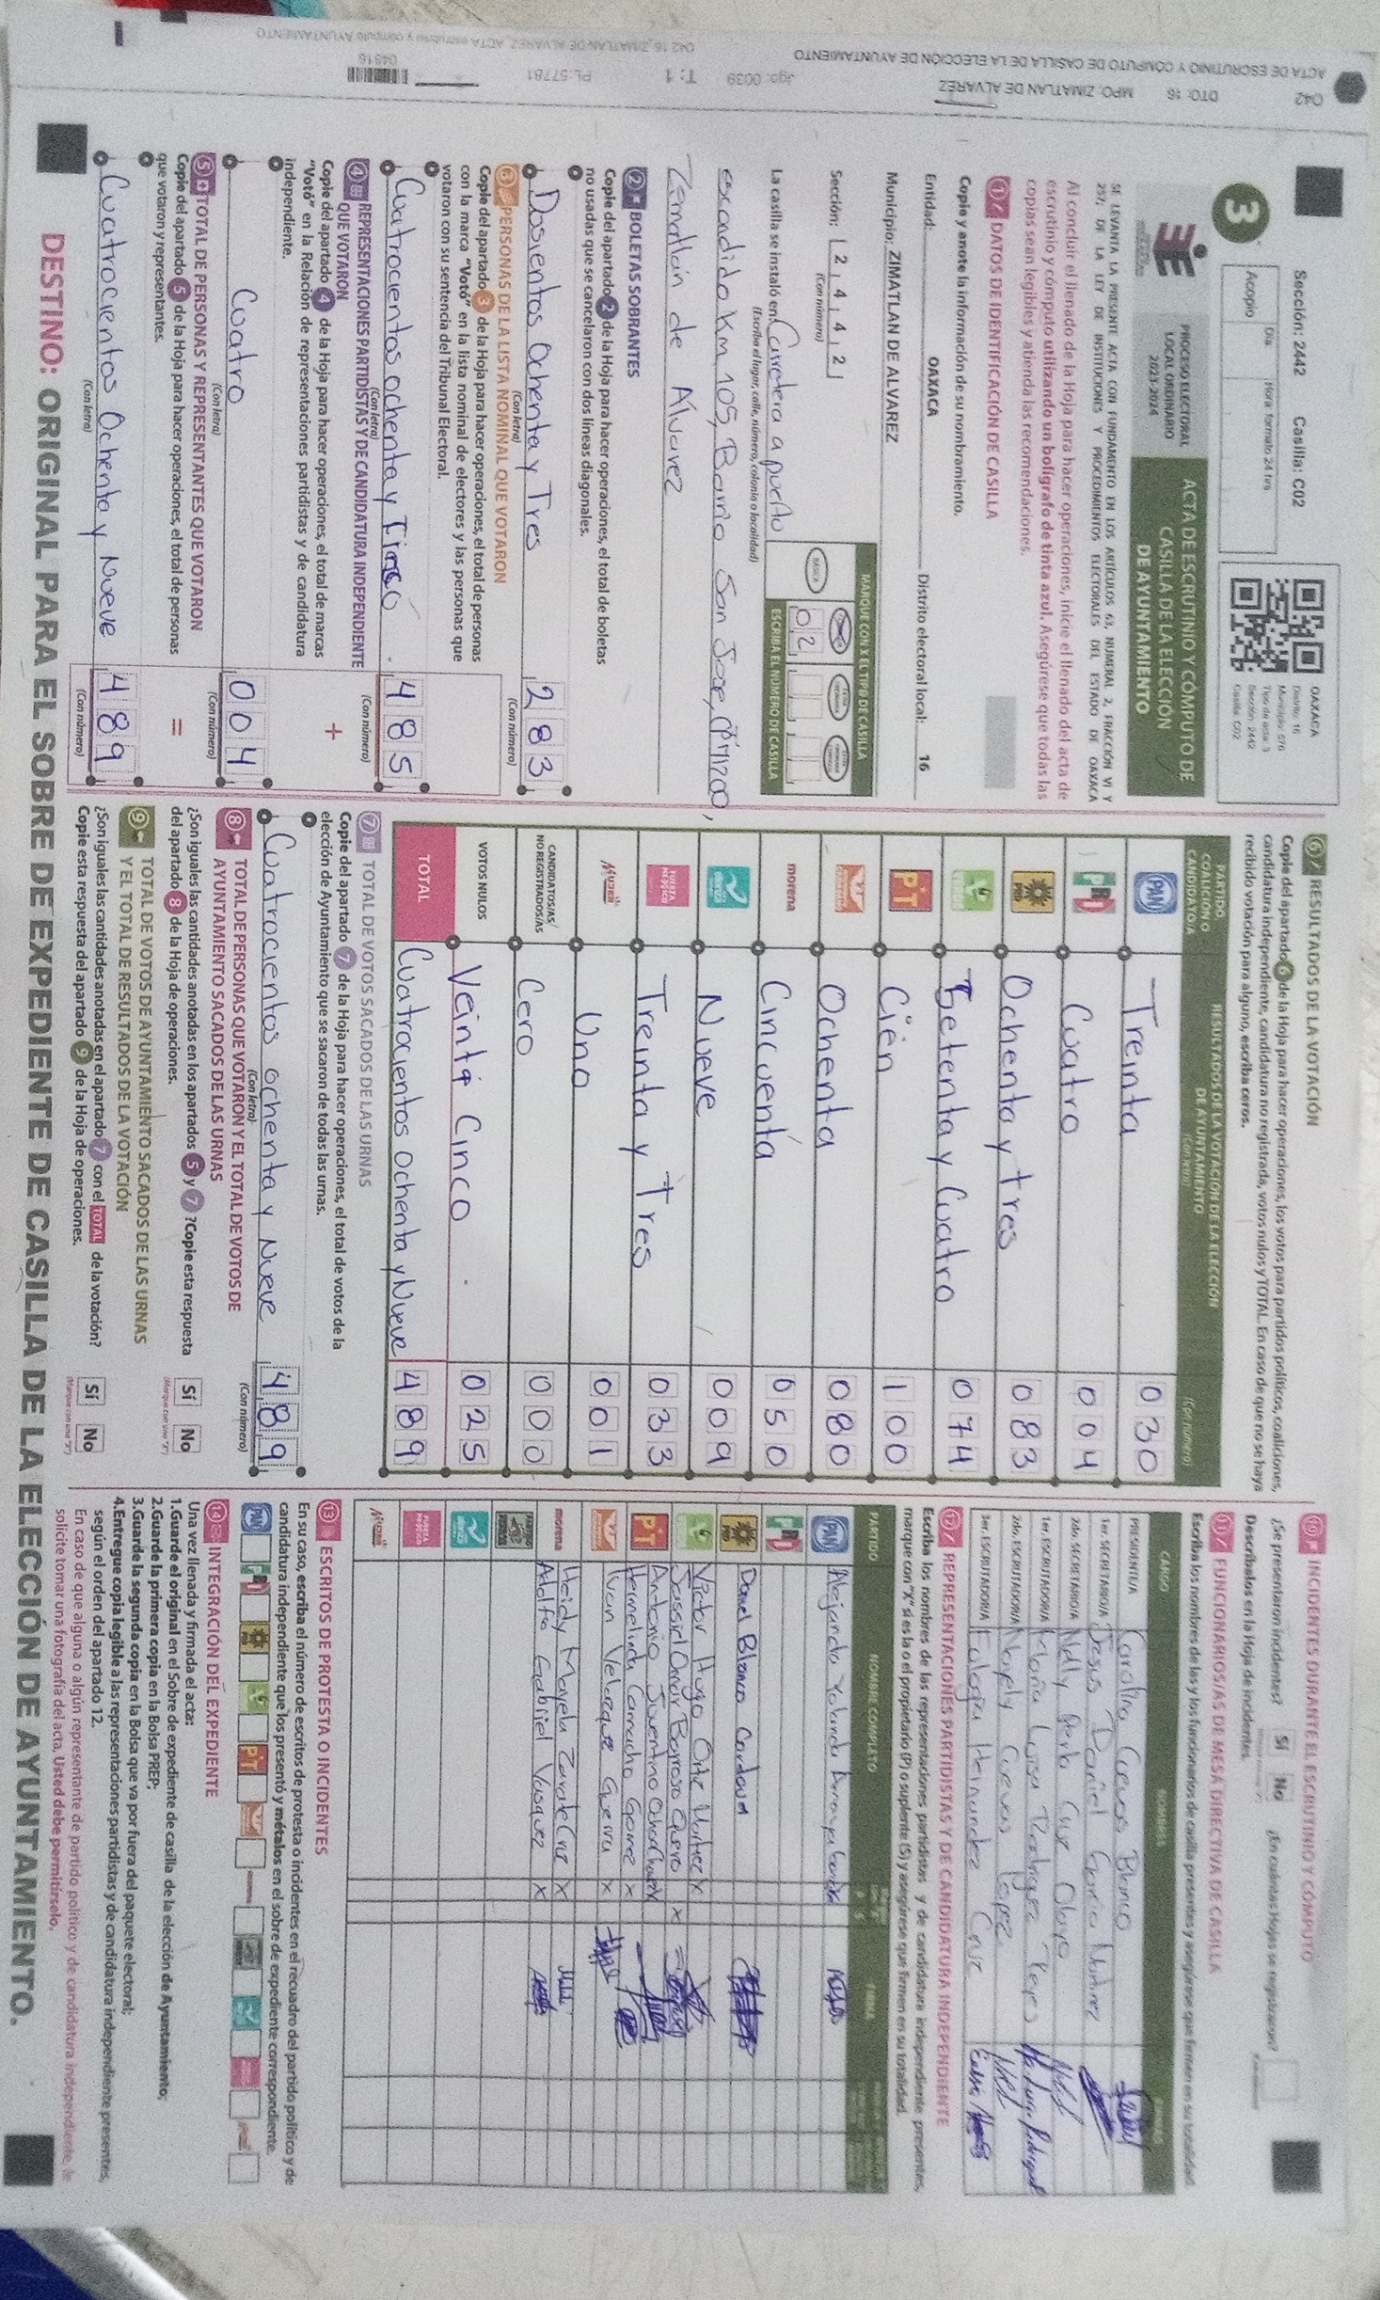 042 DTO: 16 MPO: ZIMATLAN DE ALVAREZ
ACTA DE ESCRUTINIO Y CÓMPUTO DE CASILLA DE LA ELECCIÓN DE AYUNTAMIENTO
Jgo: 0039 T: 1 PL:57781
Sección: 2442 Casilla: C02
Día Hora: formato 24 hrs
Acopio
3
OAXACA
Distrito: 16
Municipio: 570
Tipo de acta: 3
Sección: 2442
Casilla: C02
PROCESO ELECTORAL
LOCAL ORDINARIO
2023-2024
ACTA DE ESCRUTINIO Y CÓMPUTO DE
CASILLA DE LA ELECCIÓN
DE AYUNTAMIENTO
SE LEVANTA LA PRESENTE ACTA CON FUNDAMENTO EN LOS ARTÍCULOS 63, NUMERAL 2, FRACCIÓN VI Y
257; DE LA LEY DE INSTITUCIONES Y PROCEDIMIENTOS ELECTORALES DEL ESTADO DE OAXACA
Al concluir el llenado de la Hoja para hacer operaciones, inicie el llenado del acta de
escrutinio y cómputo utilizando un bolígrafo de tinta azul. Asegúrese que todas las
copias sean legibles y atienda las recomendaciones.
1 DATOS DE IDENTIFICACIÓN DE CASILLA
Copie y anote la información de su nombramiento.
Entidad: OAXACA Distrito electoral local: 16
Municipio: ZIMATLAN DE ALVAREZ
Sección: 2 4 4 2
(Con número)
MARQUE CON X EL TIPO DE CASILLA
BÁSICA
02
ESCRIBA EL NÚMERO DE CASILLA
La casilla se instaló en: Carretera a puerto
(Escriba el lugar, calle, número, colonia o localidad)
escondido Km 105, Barrio San Jose,
Zimatlan de Álvarez
2 BOLETAS SOBRANTES
Copie del apartado 2 de la Hoja para hacer operaciones, el total de boletas
no usadas que se cancelaron con dos líneas diagonales.
Dosientos Ochenta y Tres 283
(Con letra) (Con número)
3 PERSONAS DE LA LISTA NOMINAL QUE VOTARON
Copie del apartado 3 de la Hoja para hacer operaciones, el total de personas
con la marca "Votó" en la lista nominal de electores y las personas que
votaron con su sentencia del Tribunal Electoral.
Cuatrocientos ochenta y Cinco 485
(Con letra) (Con número)
4 REPRESENTACIONES PARTIDISTAS Y DE CANDIDATURA INDEPENDIENTE
QUE VOTARON
Copie del apartado 4 de la Hoja para hacer operaciones, el total de marcas
"Votó" en la Relación de representaciones partidistas y de candidatura
independiente.
+
Cuatro 004
(Con letra) (Con número)
5 TOTAL DE PERSONAS Y REPRESENTANTES QUE VOTARON
Copie del apartado 5 de la Hoja para hacer operaciones, el total de personas
que votaron y representantes.
=
Cuatrocientos Ochenta y Nueve 489
(Con letra) (Con número)
6 RESULTADOS DE LA VOTACIÓN
Copie del apartado 6 de la Hoja para hacer operaciones, los votos para partidos políticos, coaliciones,
candidatura independiente, candidatura no registrada, votos nulos y TOTAL. En caso de que no se haya
recibido votación para alguno, escriba ceros.
PARTIDO
COALICIÓN O
CANDIDATO/A
RESULTADOS DE LA VOTACIÓN DE LA ELECCIÓN
DE AYUNTAMIENTO
(Con letra) (Con número)
PAN Treinta 030
PRI Cuatro 004
PRD Ochenta y tres 083
Setenta y Cuatro 074
PT Cien 100
Ochenta 080
morena Cincuenta 050
Nueve 009
FUERZA Treinta y Tres 033
Mujer Uno 001
CANDIDATOS/AS
NO REGISTRADOS/AS Cero 000
VOTOS NULOS Veinte Cinco 025
TOTAL Cuatrocientos Ochenta y Nueve 489
7 TOTAL DE VOTOS SACADOS DE LAS URNAS
Copie del apartado 7 de la Hoja para hacer operaciones, el total de votos de la
elección de Ayuntamiento que se sacaron de todas las urnas.
Cuatrocientos ochenta y Nueve 489
(Con letra) (Con número)
8 TOTAL DE PERSONAS QUE VOTARON Y EL TOTAL DE VOTOS DE
AYUNTAMIENTO SACADOS DE LAS URNAS
¿Son iguales las cantidades anotadas en los apartados 5 y 7 ? Copie esta respuesta
del apartado 8 de la Hoja de operaciones.
Sí No
9 TOTAL DE VOTOS DE AYUNTAMIENTO SACADOS DE LAS URNAS
Y EL TOTAL DE RESULTADOS DE LA VOTACIÓN
¿Son iguales las cantidades anotadas en el apartado 7 con el TOTAL de la votación?
Copie esta respuesta del apartado 9 de la Hoja de operaciones.
Sí No
10 INCIDENTES DURANTE EL ESCRUTINIO Y CÓMPUTO
¿Se presentaron incidentes? Sí No ¿En cuántas Hojas se registraron?
Descríbalos en la Hoja de incidentes.
11 FUNCIONARIOS/AS DE MESA DIRECTIVA DE CASILLA
Escriba los nombres de las y los funcionarios de casilla presentes y asegúrese que firmen en su totalidad.
CARGO NOMBRES
PRESIDENTE/A Carolina Cuevas Blanco
1er. SECRETARIO/A Jesus Daniel Garcia Martinez
2do. SECRETARIO/A Nelly
1er. ESCRUTADOR/A Maria Luisa Rodriguez Reyes
2do. ESCRUTADOR/A Nayely Cuevas Lopez
3er. ESCRUTADOR/A Eulogia Hernandez Cruz
12 REPRESENTACIONES PARTIDISTAS Y DE CANDIDATURA INDEPENDIENTE
Escriba los nombres de las representaciones partidistas y de candidatura independiente presentes,
marque con "X" si es la o el propietario (P) o suplente (S) y asegúrese que firmen en su totalidad.
PARTIDO NOMBRE COMPLETO FIRMA
PAN Alejandra Yolanda
PRI
PRD Daniel Blanco Cordova
Victor Hugo Ortiz Martinez X
Omar Barroso X
PT Antonio Juventino
Hermelinda Camacho Gomez X
Ivan Velazquez Guerra X
morena Heidy Mayela Zarate Cruz X
Adolfo Gabriel Vasquez X
Mujer
13 ESCRITOS DE PROTESTA O INCIDENTES
En su caso, escriba el número de escritos de protesta o incidentes en el recuadro del partido político y de
candidatura independiente que los presentó y métalos en el sobre de expediente correspondiente.
PAN PRI PRD PT
14 INTEGRACIÓN DEL EXPEDIENTE
Una vez llenada y firmada el acta:
1.Guarde el original en el Sobre de expediente de casilla de la elección de Ayuntamiento;
2.Guarde la primera copia en la Bolsa PREP;
3.Guarde la segunda copia en la Bolsa que va por fuera del paquete electoral;
4.Entregue copia legible a las representaciones partidistas y de candidatura independiente presentes,
según el orden del apartado 12.
En caso de que alguna o algún representante de partido político y de candidatura independiente, le
solicite tomar una fotografía del acta, Usted debe permitírselo.
DESTINO: ORIGINAL PARA EL SOBRE DE EXPEDIENTE DE CASILLA DE LA ELECCIÓN DE AYUNTAMIENTO.